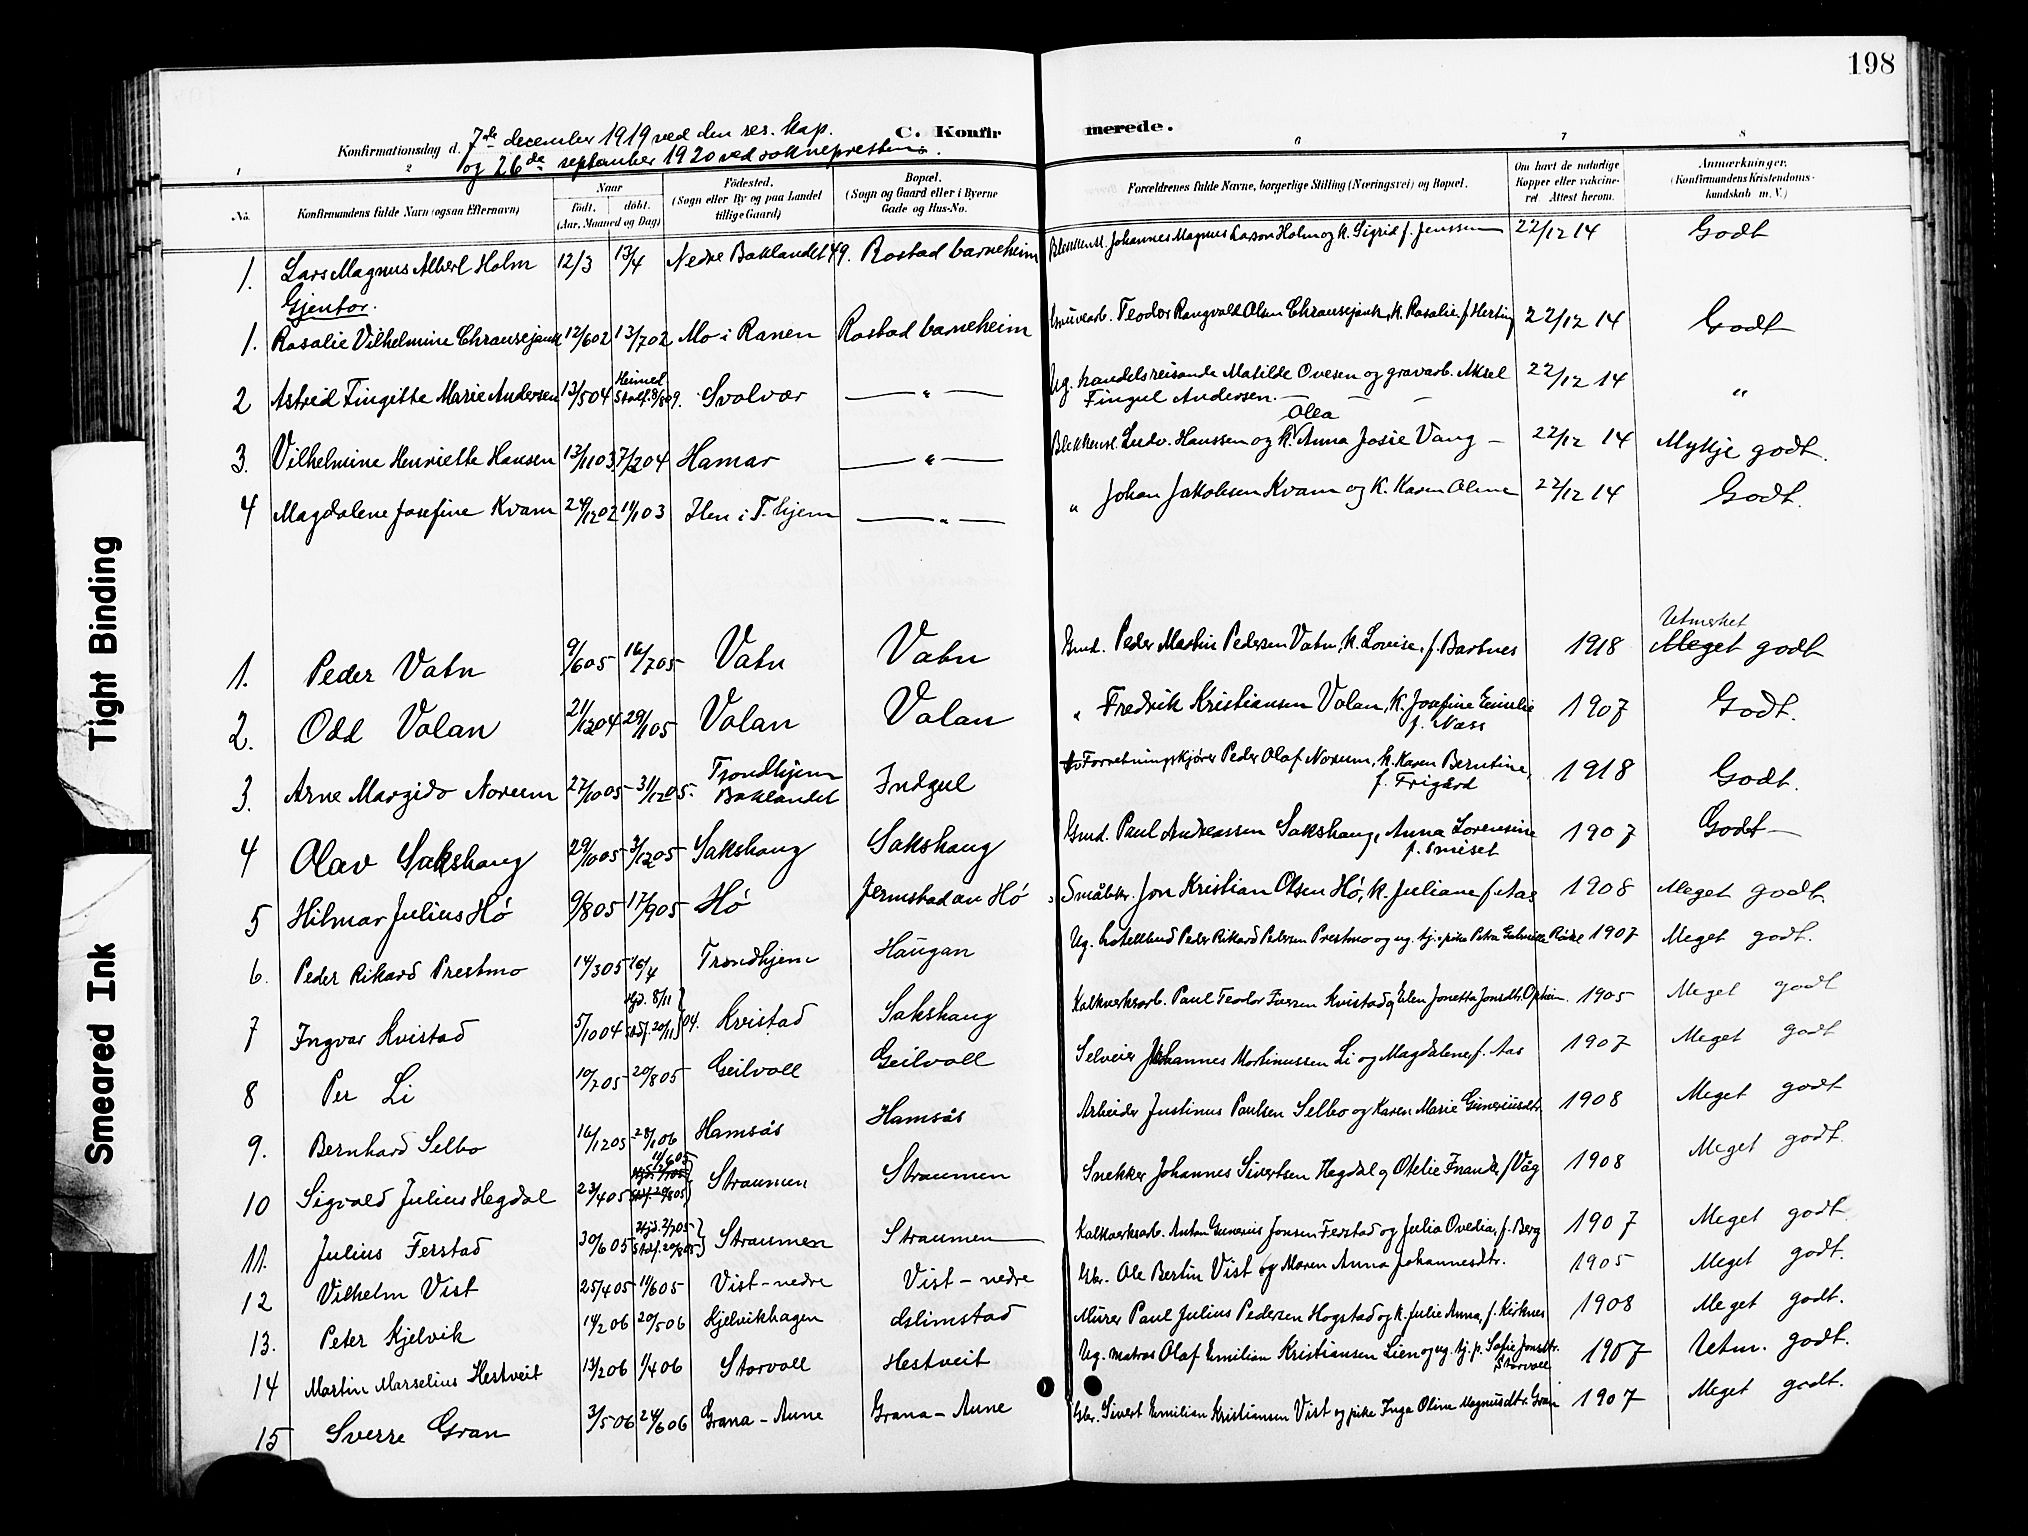 198
7de december 1919 ved den res. kap.
C. Konfirmerede.
Konfirmationsdag d. og 26de september 1920 ved soknepresten.
1 2 6 7 8
No. Konfirmandens fulde Navn (ogsaa Efternavn) Naar født. døbt. (Aar, Maaned og Dag) Fødested. (Sogn eller By og paa Landet tillige Gaard) Bopæl. (Sogn og Gaard eller i Byerne Gade og Hus-No. Forældrenes fulde Navne, borgerlige Stilling (Næringsvei) og Bopæl. Om havt de naturlige Kopper eller vakcineret. Attest herom. Anmærkninger. (Konfirmandens Kristendomskundskab m. V.)
1. Lars Magnus Albert Holm 12/3 13/4 Nedre Baklandet 49. Rostad barneheim Johannes Magnus Larson Holm og k. Sigrid f. Jenssen 22/12 14 Godt
Gjentor.
1. Rosalie Vilhelmine 12/6 02 13/7 02 Mo i Ranen Rostad barneheim Teodor Rangvald Olsen k. Rosalie f. Herting 22/12 14 Godt
2 Astrid Fingitte Marie Andersen 13/5 04 Heimed. Stadf. 8/8 09. Svolvær — " — Ug. handelsreisande Matilde Ovesen og gravarb. Aksel Fingul Andersen. — 22/12 14 "
3. Vilhelmine Henriette Hansen 13/11 03 7/2 04 Hamar — " — Blekkensl. Ludv. Hanssen og k. Olea Anna Josie Vang — 22/12 14 Mykje godt.
4 Magdalene Josefine Kvam 24/12 02 1/1 03 Ilen i T.hjem — " — " Johan Jakobsen Kvam og k. Karen Oline 22/12 14 Godt.
1. Peder Vatn 9/6 05 16/7 05 Vatn Vatn Gmd. Peder Martin Pedersen Vatn, k. Lovise, f. Bartnes 1918 Utmerket Meget godt
2. Odd Volan 21/12 04 29/1 05 Volan Volan " Fredrik Kristiansen Volan, k. Josefine Emilie f. Næss 1907 Godt.
3. Arne Margido Norum 27/10 05 31/12 05. Trondhjem Baklandet Indgul Forretningskjører Peder Olaf Norum, k. Karen Berntine, f. Frigård 1918 Godt.
4 Olav Sakshaug 29/10 05 3/12 05 Sakshaug Sakshaug Gmd. Paul Andreassen Sakshaug, Anna Lorensine f. Smeset 1907 Godt —
5 Hilmar Julius Hø 9/8 05 17/9 05 Hø Jermstad au Hø Småbr. Jon Kristian Olsen Hø, k. Juliane f. Aas 1908 Meget godt
6. Peder Rikard Prestmo 14/3 05 16/4 Trondhjem Haugan Ug. hotellbud Peder Rikard Pedersen Prestmo og ug. tj.pike Petra 1907 Meget godt.
7 Ingvar Kvistad 5/10 04 Hjd. 8/11 Stadf. 20/11 04. Kvistad Sakshaug Kalkverksarb. Paul Teodor Iversen Kvistad og Elen Jonetta Jonsdtr. Opheim. 1905 Meget godt
8 Per Li 10/7 05 20/8 05 Geilvoll Geilvoll Selveier Johannes Martinussen Li og Magdalene f. Aas 1907 Meget godt
9. Bernhard Selbo 16/12 05 28/1 06 Hamsås Hamsås Arbeider Justinus Paulsen Selbo og Karen Marie Guneriusdtr. 1908 Meget godt
10 Sigvald Julius Hegdal 23/4 05 11/6 05 Straumen Straumen Snekker Johannes Sivertsen Hegdal og Otelie f. Våg 1908 Meget godt.
11. Julius Ferstad 30/6 05 Hjd. 2/7 05 Stadf. 20/8 05 Straumen Straumen Kalkverksarb. Anton Gunerius Jonsen Ferstad og Julia Ovedia, f. Berg 1907 Meget godt.
12 Vilhelm Vist 25/4 05 11/6 05 Vist-nedre Vist-nedre Gbr. Ole Bertin Vist og Maren Anna Johannesdtr. 1905 Meget godt.
13. Peter Kjelvik 14/2 06 20/5 06 Kjelvikhagen Murer Paul Julius Pedersen Hogstad og k. Julie Anna, f. Kirknes 1908 Meget godt.
14 Martin Marselius Hestveit 13/2 06 1/4 06 Storvoll Hestveit Ug. matros Olaf Emilian Kristiansen Lien og ug. tj. p. Sofie Jonsdtr. Storvoll 1907 Utm. godt.
15 Sverre Gran 3/5 06 24/6 06 Grana-Aune Grana-Aune Gbr. Sivert Emilian Kristiansen Vist og pike Inga Oline Magnusdtr. Gran 1907 Meget godt.
Tight Binding
Smeared Ink